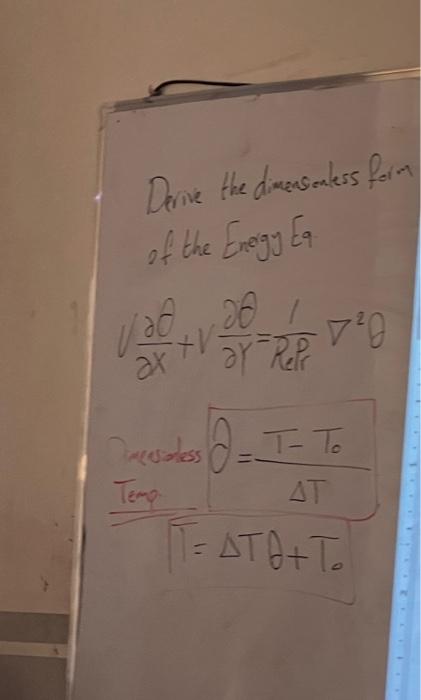 Derive the dimensionless form
of the Energy Eq.
U ∂θ/∂X + V ∂θ/∂Y = 1/RePr ∇²θ
Dimensionless Temp. θ = T - T₀ / ΔT
T = ΔT θ + T₀